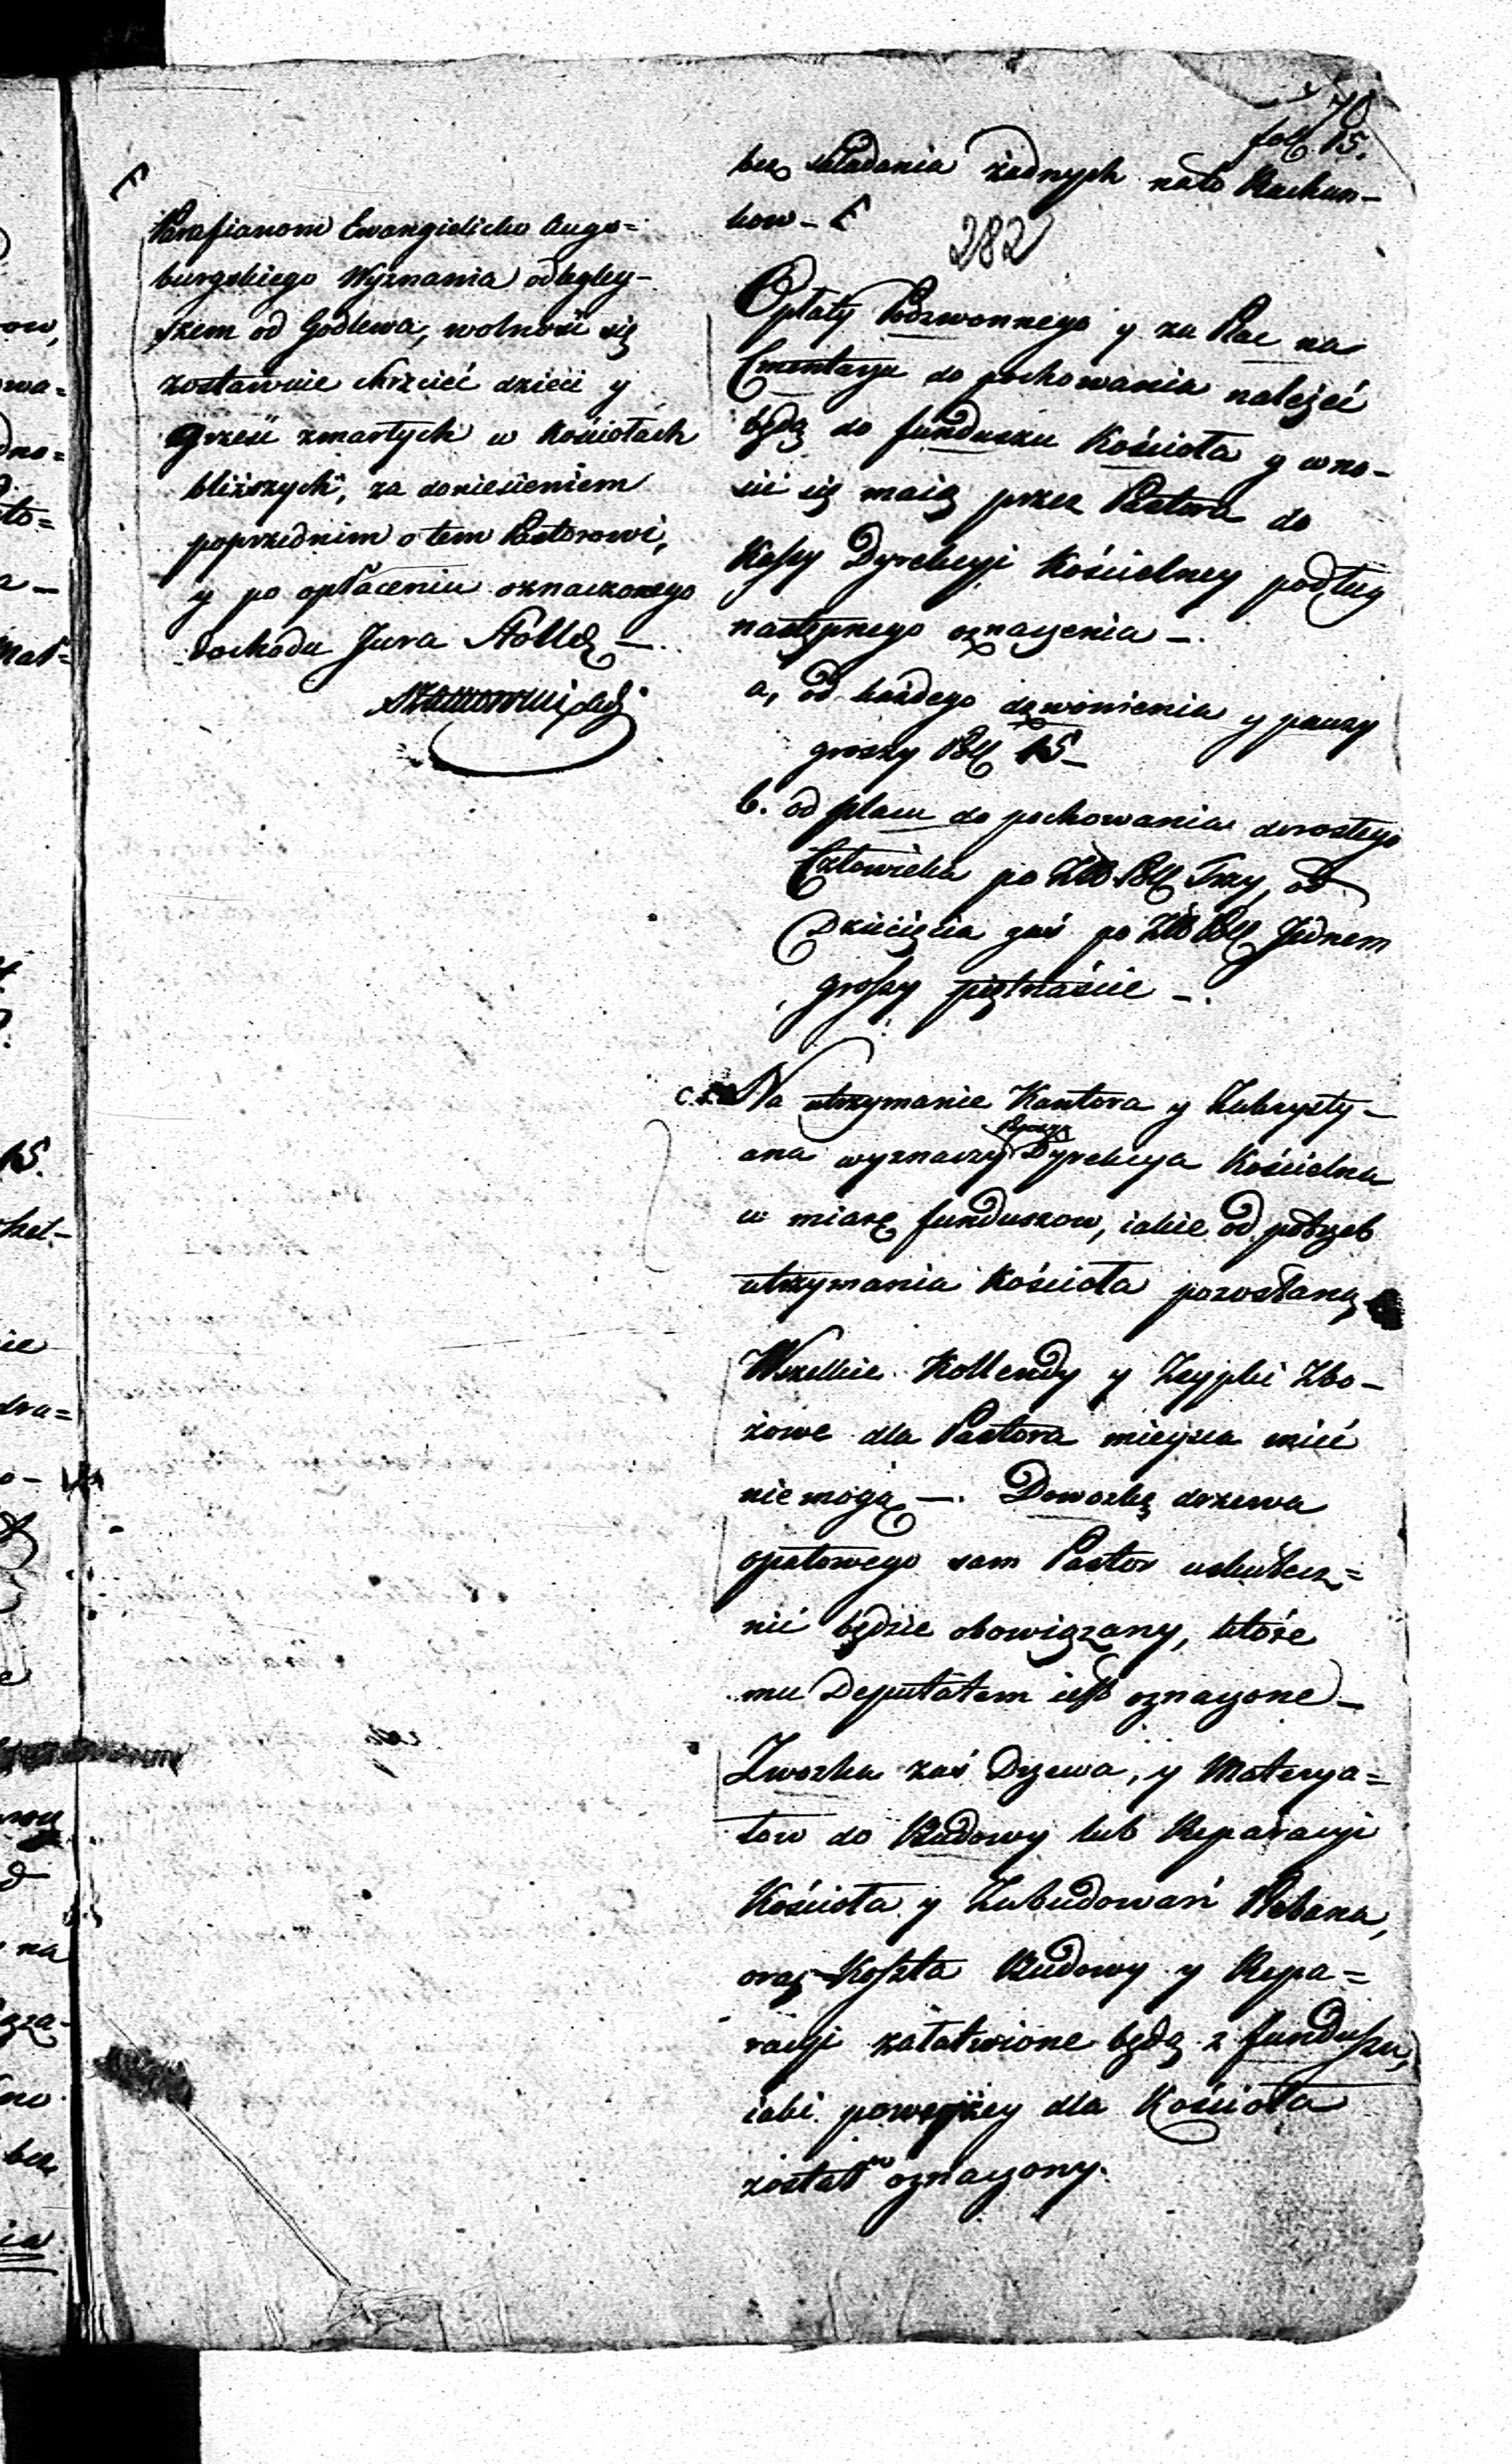 70
fol 15.
bez składania żadnych nato Rachun-
kow - F
282
F
Parafianom Ewangielicko Augs=
burgskiego Wyznania odlegley-
szem od Godlewa, wolność się
zostawuie chrzcić dzieci y
grześć zmartych w Kościołach
bliższych, za doniesieniem
poprzednim o tem Pastorowi,
y po opłaceniu oznaczonego
dochodu Jura Stollæ —.
Opłaty Podzwonnego y za Plac na
Cmentarzu do pochowania należeć
będą do funduszu Kościoła y wno-
sić się maią przez Pastora do
Kassy Dyrekcyi Kościelney podług
następnego oznaczenia —.
a, od każdego dzwonienia y pauzy
groszy Pol 15 -
b. od placu do pochowania dorosłego
Człowieka po Złł Poll Trzy, od
Dziecięcia zaś po Złł Poll Jednem
groszy piętnaście —.
Na utrzymanie Kantora y Zakrysty-
ana wyznaczy Dyrekcya Kościelna
w miarę funduszow, iakie od potrzeb
utrzymania Kościoła pozostaną
Wszelkie Kollendy y Zsypki Zbo-
żowe dla Pastora mieysca mieć
nie mogą —. Dowozkę drzewa
opałowego sam Pastor uskutecz=
nić będzie obowiązany, które
mu Deputatem iest oznaczone —
Zwozka zaś Drzewa, y Materya=
łow do Budowy lub Reparacyi
Kościoła y Zabudowań Plebana,
oraz Koszta Budowy y Repa=
racyi załatwione będą z funduszu,
iaki powyżey dla Kościoła
został oznaczony.